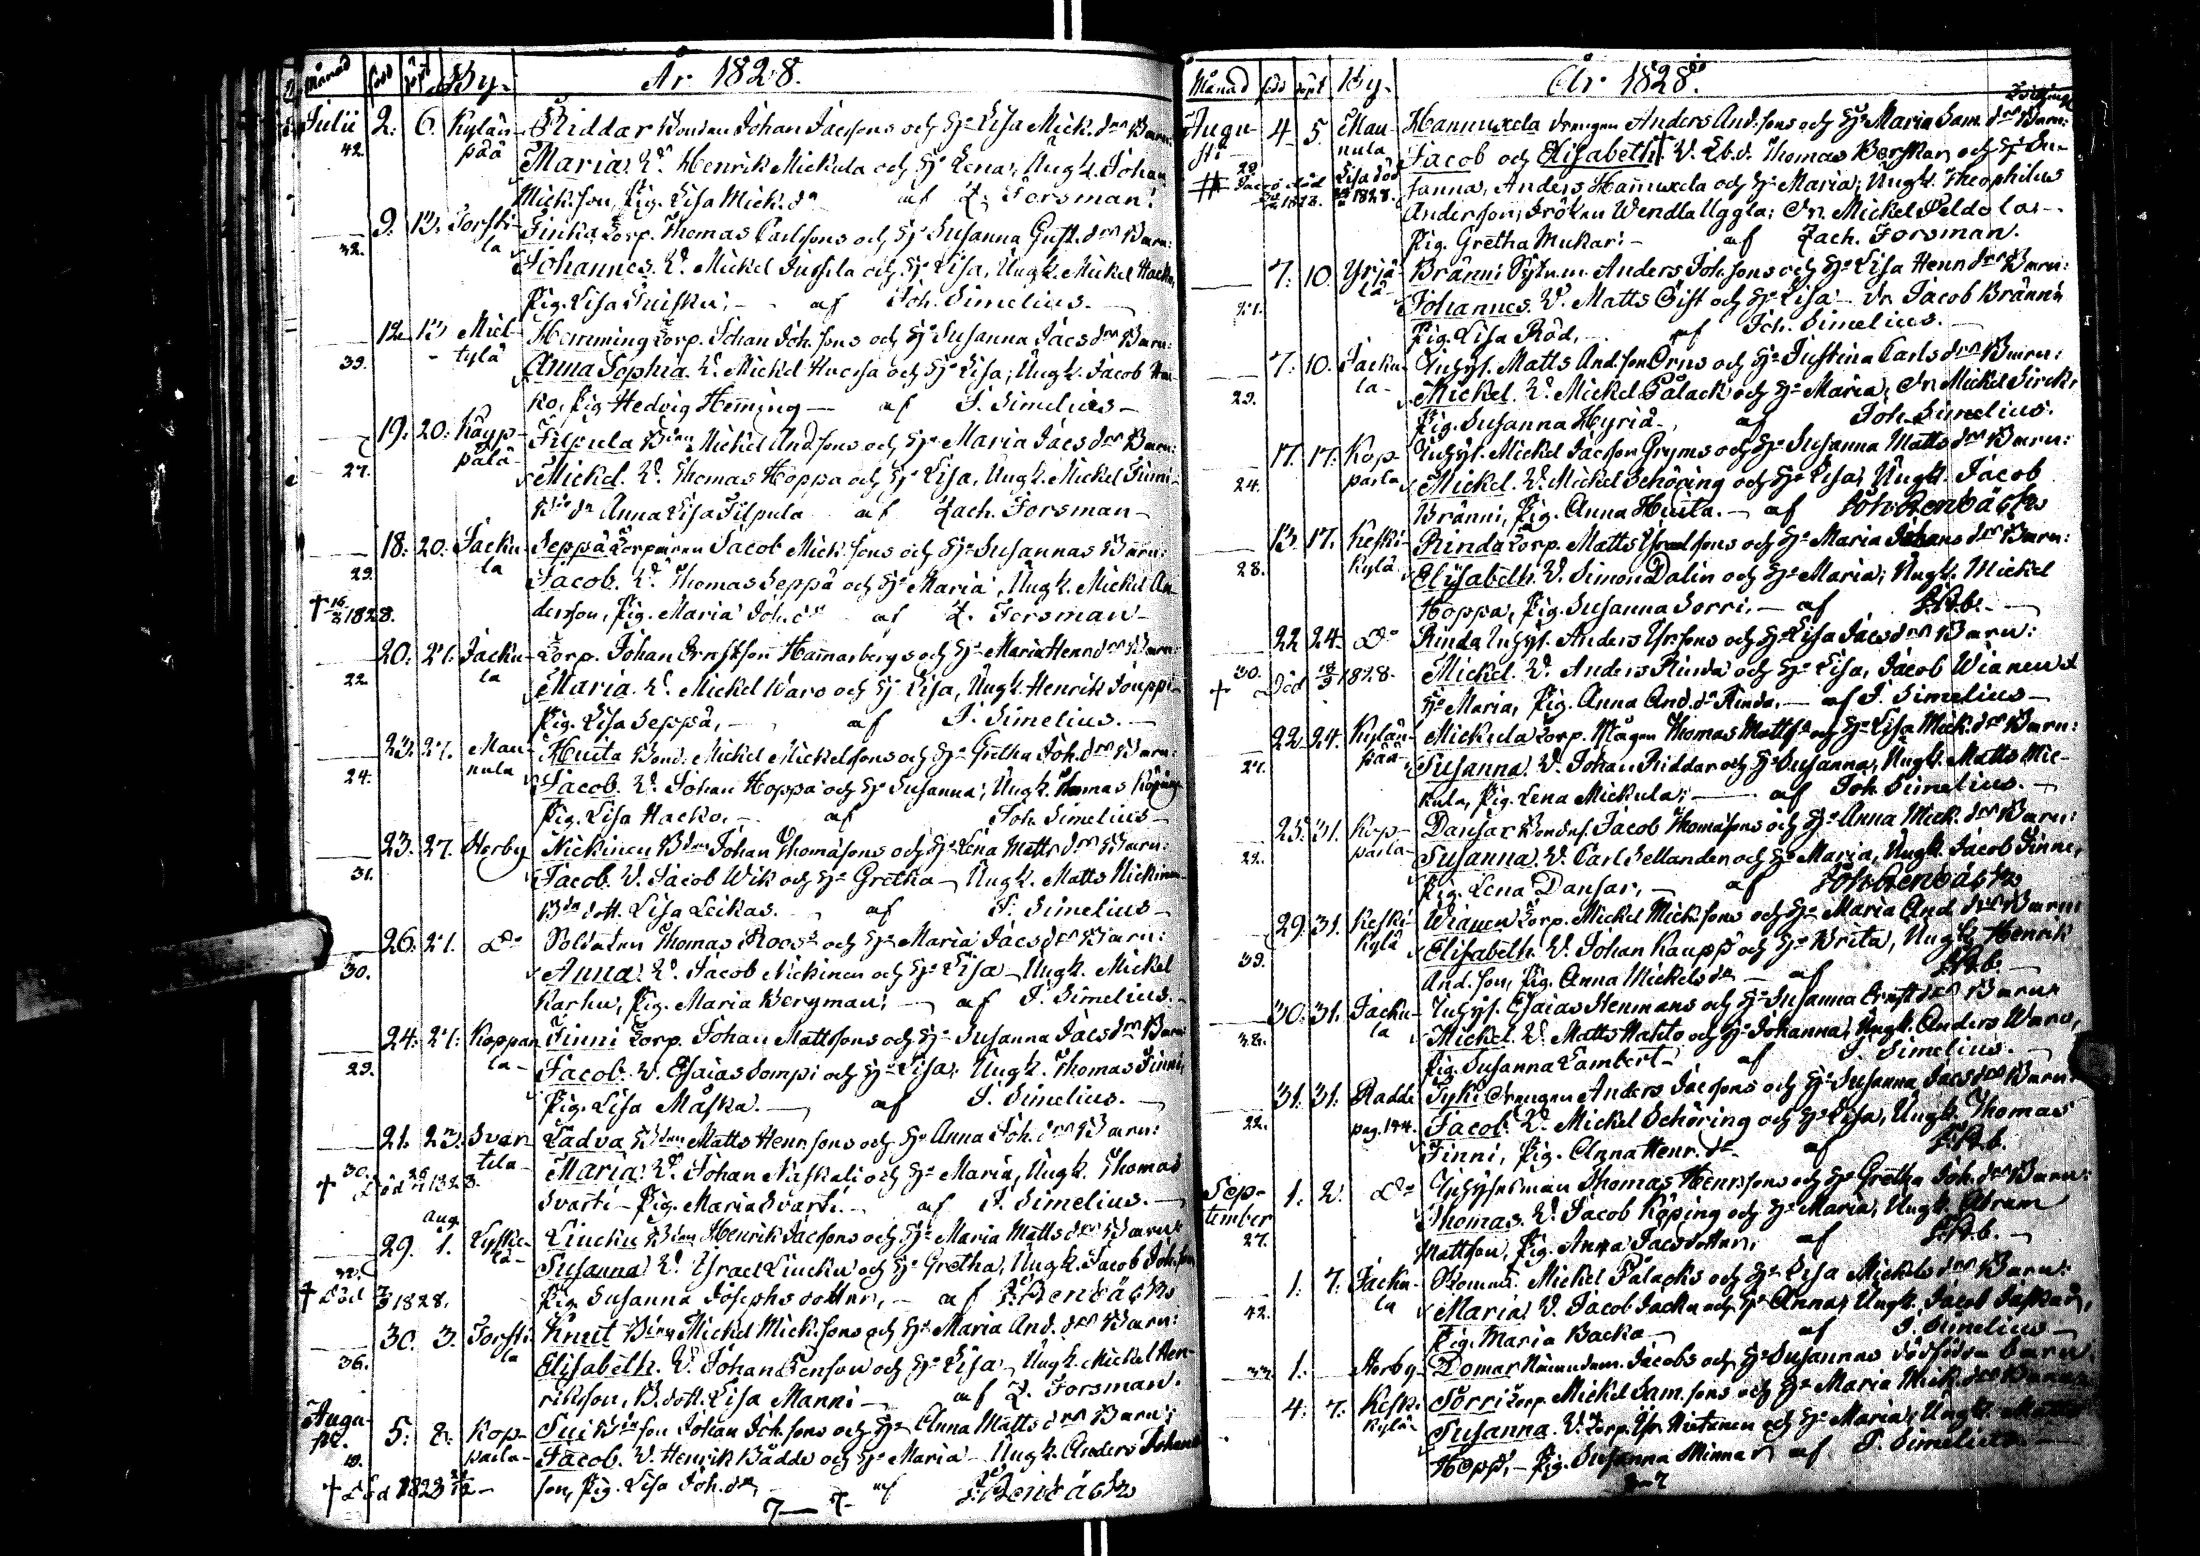 Månad född döpt By. År 1828.
Julii 2. 6. Kylän- Riddar Bonden Johan Jacssons och H:o Lisa Mick.dr Barn:
42. pää Maria. V. Henrik Mickula och H:o Lena, Ungk. Johan
Micksson, Pig. Lisa Mick.dr af Z. Forsman.
9. 13. Torsti- Finka Torp. Thomas Carlssons och H:o Susanna Gust.dr Barn:
32. la Johannes. V. Mickel Jussila och H:o Lisa, Ungk. Mickel
Pig. Lisa af Joh. Simelius.
12. 13. Miel- Hemming Torp. Johan Joh.sons och H:o Susanna Jacsdr Barn:
33. tylä Anna Sophia. V. Mickel och H:o Lisa, Ungk. Jacob
ko, Pig. Hedvig Heming — af J. Simelius —
19. 20. Käyp- Filpula Mickel Andssons och H:o Maria Jacsdr Barn:
27. pälä Mickel. V. Thomas Hoppa och H:o Lisa, Ungk. Mickel Finni
Anna Lisa Filpula af Zach. Forsman —
18. 20. Jacku- Seppä Torparen Jacob Micksons och H:o Susannas Barn:
29. la Jacob. V. Thomas Seppä och H:o Maria, Ungk. Mickel An-
† 1828. dersson, Pig. Maria Joh.dr af Z. Forsman —
20. 21. Jacku- Torp. Johan Ernstson Hamarbergs och H:o Maria Henrdr Barn:
22. la Maria. V. Mickel Waro och H:o Lisa, Ungk. Henrik Jouppi
Pig. Lisa Seppä, — af J. Simelius. —
23. 27. Mau- Huita Bond. Mickel Mickelsons och H:o Gretha Joh.dr Barn:
24. nula Jacob. V. Johan Hoppa och H:o Susanna, Ungk. Thomas Köping
Pig. Lisa Hacko, — af Joh. Simelius —
23. 27. Horby Nickinen Johan Thomasons och H:o Lena Mattsdr Barn:
31. Jacob. V. Jacob Wik och H:o Gretha — Ungk. Matts Nickinen
dott. Lisa Leikas. af J. Simelius —
26. 27. D:o Soldaten Thomas Roos och H:o Maria Jacsdr Barn:
30. Anna. V. Jacob Nickinen och H:o Lisa — Ungk. Mickel
Karhu, Pig. Maria Bergman; — af J. Simelius. —
24. 27. Koppar- Finni Torp. Johan Mattssons och H:o Susanna Jacsdr Barn:
29. la Jacob. V. Esaias Sompi och H:o Lisa, Ungk. Thomas Finni,
Pig. Lisa Maska. — af J. Simelius. —
21. 23. Svar- Ladva Matts Henrsons och H:o Anna Joh.dr Barn:
30. tila Maria. V. Johan Naskali och H:o Maria, Ungk. Thomas
† Död 1828. Svarti — Pig. Maria Svarti. — af J. Simelius. —
Aug.
29. 1. Lyske- Liucku Henrik Jacsons och H:o Maria Mattsdr Barn:
32. lä Susanna. V. Israel Liucku och H:o Gretha, Ungk. Jacob Joh.son
† Död 1828. Pig. Susanna Josephs dotter, — af J. Renbäck
30. 3. Torsti- Knut Mickel Micksons och H:o Maria And.dr Barn:
36. la Elisabeth. V. Johan och H:o Lisa — Ungk. Mickel Hen-
rikson, B.dott. Lisa Manni — af Z. Forsman.
Augu-
sti. 5. 8. Kop- Johan Joh.sons och H:o Anna Mattsdr Barn:
parla Jacob. V. Henrik Rädde och H:o Maria — Ungk. Anders Johans
† Död 1828 son, Pig. Lisa Joh.dr, af J. Renbäck
7 — 7
Månad född döpt By. År 1828.
Augu- 4. 5. Mau- Hannuxela Drengen Anders Andssons och H:o Maria Sam.dr Barn:
sti nula Jacob och Elisabeth † V. Thomas Berstian och H:o Su-
29. Jacob död Lisa död 1828. sanna, Anders Hannuxela och H:o Maria, Ungk. Theophilus
Anderson, Fröken Wendla Uggla; Dr. Mickel Peldola —
Pig. Gretha Mukari — af Zach. Forsman.
7. 10. Yrjä- Bränni Anders Joh.sons och H:o Lisa Henrdr Barn:
27. lä Johannes. V. Matts Gist och H:o Lisa — Dr. Jacob Bränni
Pig. Lisa Röd, — af Joh. Simelius. —
7. 10. Jacku- Inhys. Matts Andsson Orns och H:o Justina Carlsdr Barn:
23. la Mickel. V. Mickel Palack och H:o Maria, Dr. Mickel
Pig. Susanna Hyria —, af Joh. Simelius.
17. 17. Kop- Inhys. Mickel Jacsson Gryms och H:o Susanna Mattsdr Barn:
24. parla Mickel. V. Mickel Schöring och H:o Lisa, Ungk. Jacob
Bränni, Pig. Anna Huita. — af Joh. Renbäck
13. 17. Keski- Rinda Torp. Matts Israelsons och H:o Maria Johans dr Barn:
28. kylä Elisabeth. V. Simon Dalin och H:o Maria, Ungk. Mickel
Hoppa, Pig. Susanna Sorri, — af J. Rb. —
22. 24. D:o Rinda Inhys. Anders Isrsons och H:o Lisa Jacsdr Barn:
30. † Död 1828. Mickel. V. Anders Rinda och H:o Lisa, Jacob Wianen &
H:o Maria, Pig. Anna And.dr Rinda, — af J. Simelius —
22. 24. Kylän- Mickula Torp. Mågen Thomas Mattss och H:o Lisa Mick.dr Barn:
27. pää Susanna. V. Johan Riddar och H:o Susanna, Ungk. Matts Mic-
kula, Pig. Lena Mickula; — af Joh. Simelius. —
25. 31. Kop- Dansar Bondes. Jacob Thomasons och H:o Anna Mick.dr Barn:
22. parla Susanna. V. Carl Sellander och H:o Maria, Ungk. Jacob Finne,
Pig. Lena Dansar, — af Joh. Renbäck
29. 31. Keski- Wianen Torp. Mickel Micksons och H:o Maria And.dr Barn:
33. kylä Elisabeth. V. Johan Kaupp och H:o Brita, Ungk. Henrik
And.son, Pig. Anna Mickelsdr — af J. Rb. —
30. 31. Jacku- Inhys. Esaias Stenmans och H:o Susanna Ernstdr Barn:
38. la Mickel. V. Matts Mahto och H:o Johanna, Ungk. Anders Waro,
Pig. Susanna Lambert — af J. Simelius. —
31. 31. Radde Tyki Drengen Anders Jacsons och H:o Susanna Jacsdr Barn:
22. pag. 144. Jacob. V. Mickel Schöring och H:o Lisa, Ungk. Thomas
Finni, Pig. Anna Henr.dr af J. Rb.
Sep- 1. 2. D:o Inhysesman Thomas Henrsons och H:o Gretha Joh.dr Barn:
tember Thomas. V. Jacob Köping och H:o Maria, Ungk. Abram
27. Mattson, Pig. Anna Jacsdotter, af J. Rb. —
1. 7. Jacku- Mickel Palacks och H:o Lisa Mickelsdr Barn:
42. la Maria. V. Jacob Jacku och H:o Anna, Ungk. Jacob
Pig. Maria Backa — af J. Simelius —
33. 1. Horby Domar Nämndem. Jacobs och H:o Susannas dödfödda barn.
4. 7. Keski- Sorri Torp. Mickel Sam.sons och H:o Maria Mick.dr Barn:
kylä Susanna. V. Torp. Isr. Hietanen och H:o Maria, Ungk. Matts
Hopp, — Pig. Susanna Minna af J. Simelius. —